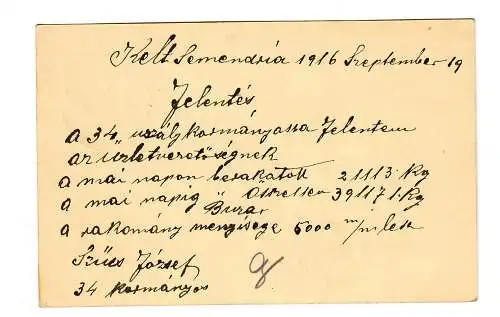 Kelt Semendria 1916 Szeptember 19
Jelentés
a 34 „ uszály kormányossa Jelentem
az üzletvezetőségnek
a mai napon berakatott 21113 Kg
a mai napig „ Össessen 391171 Kg
Buza
a rakomány menyisége 5000 m/m lett
Szücs József
34 Kormányos